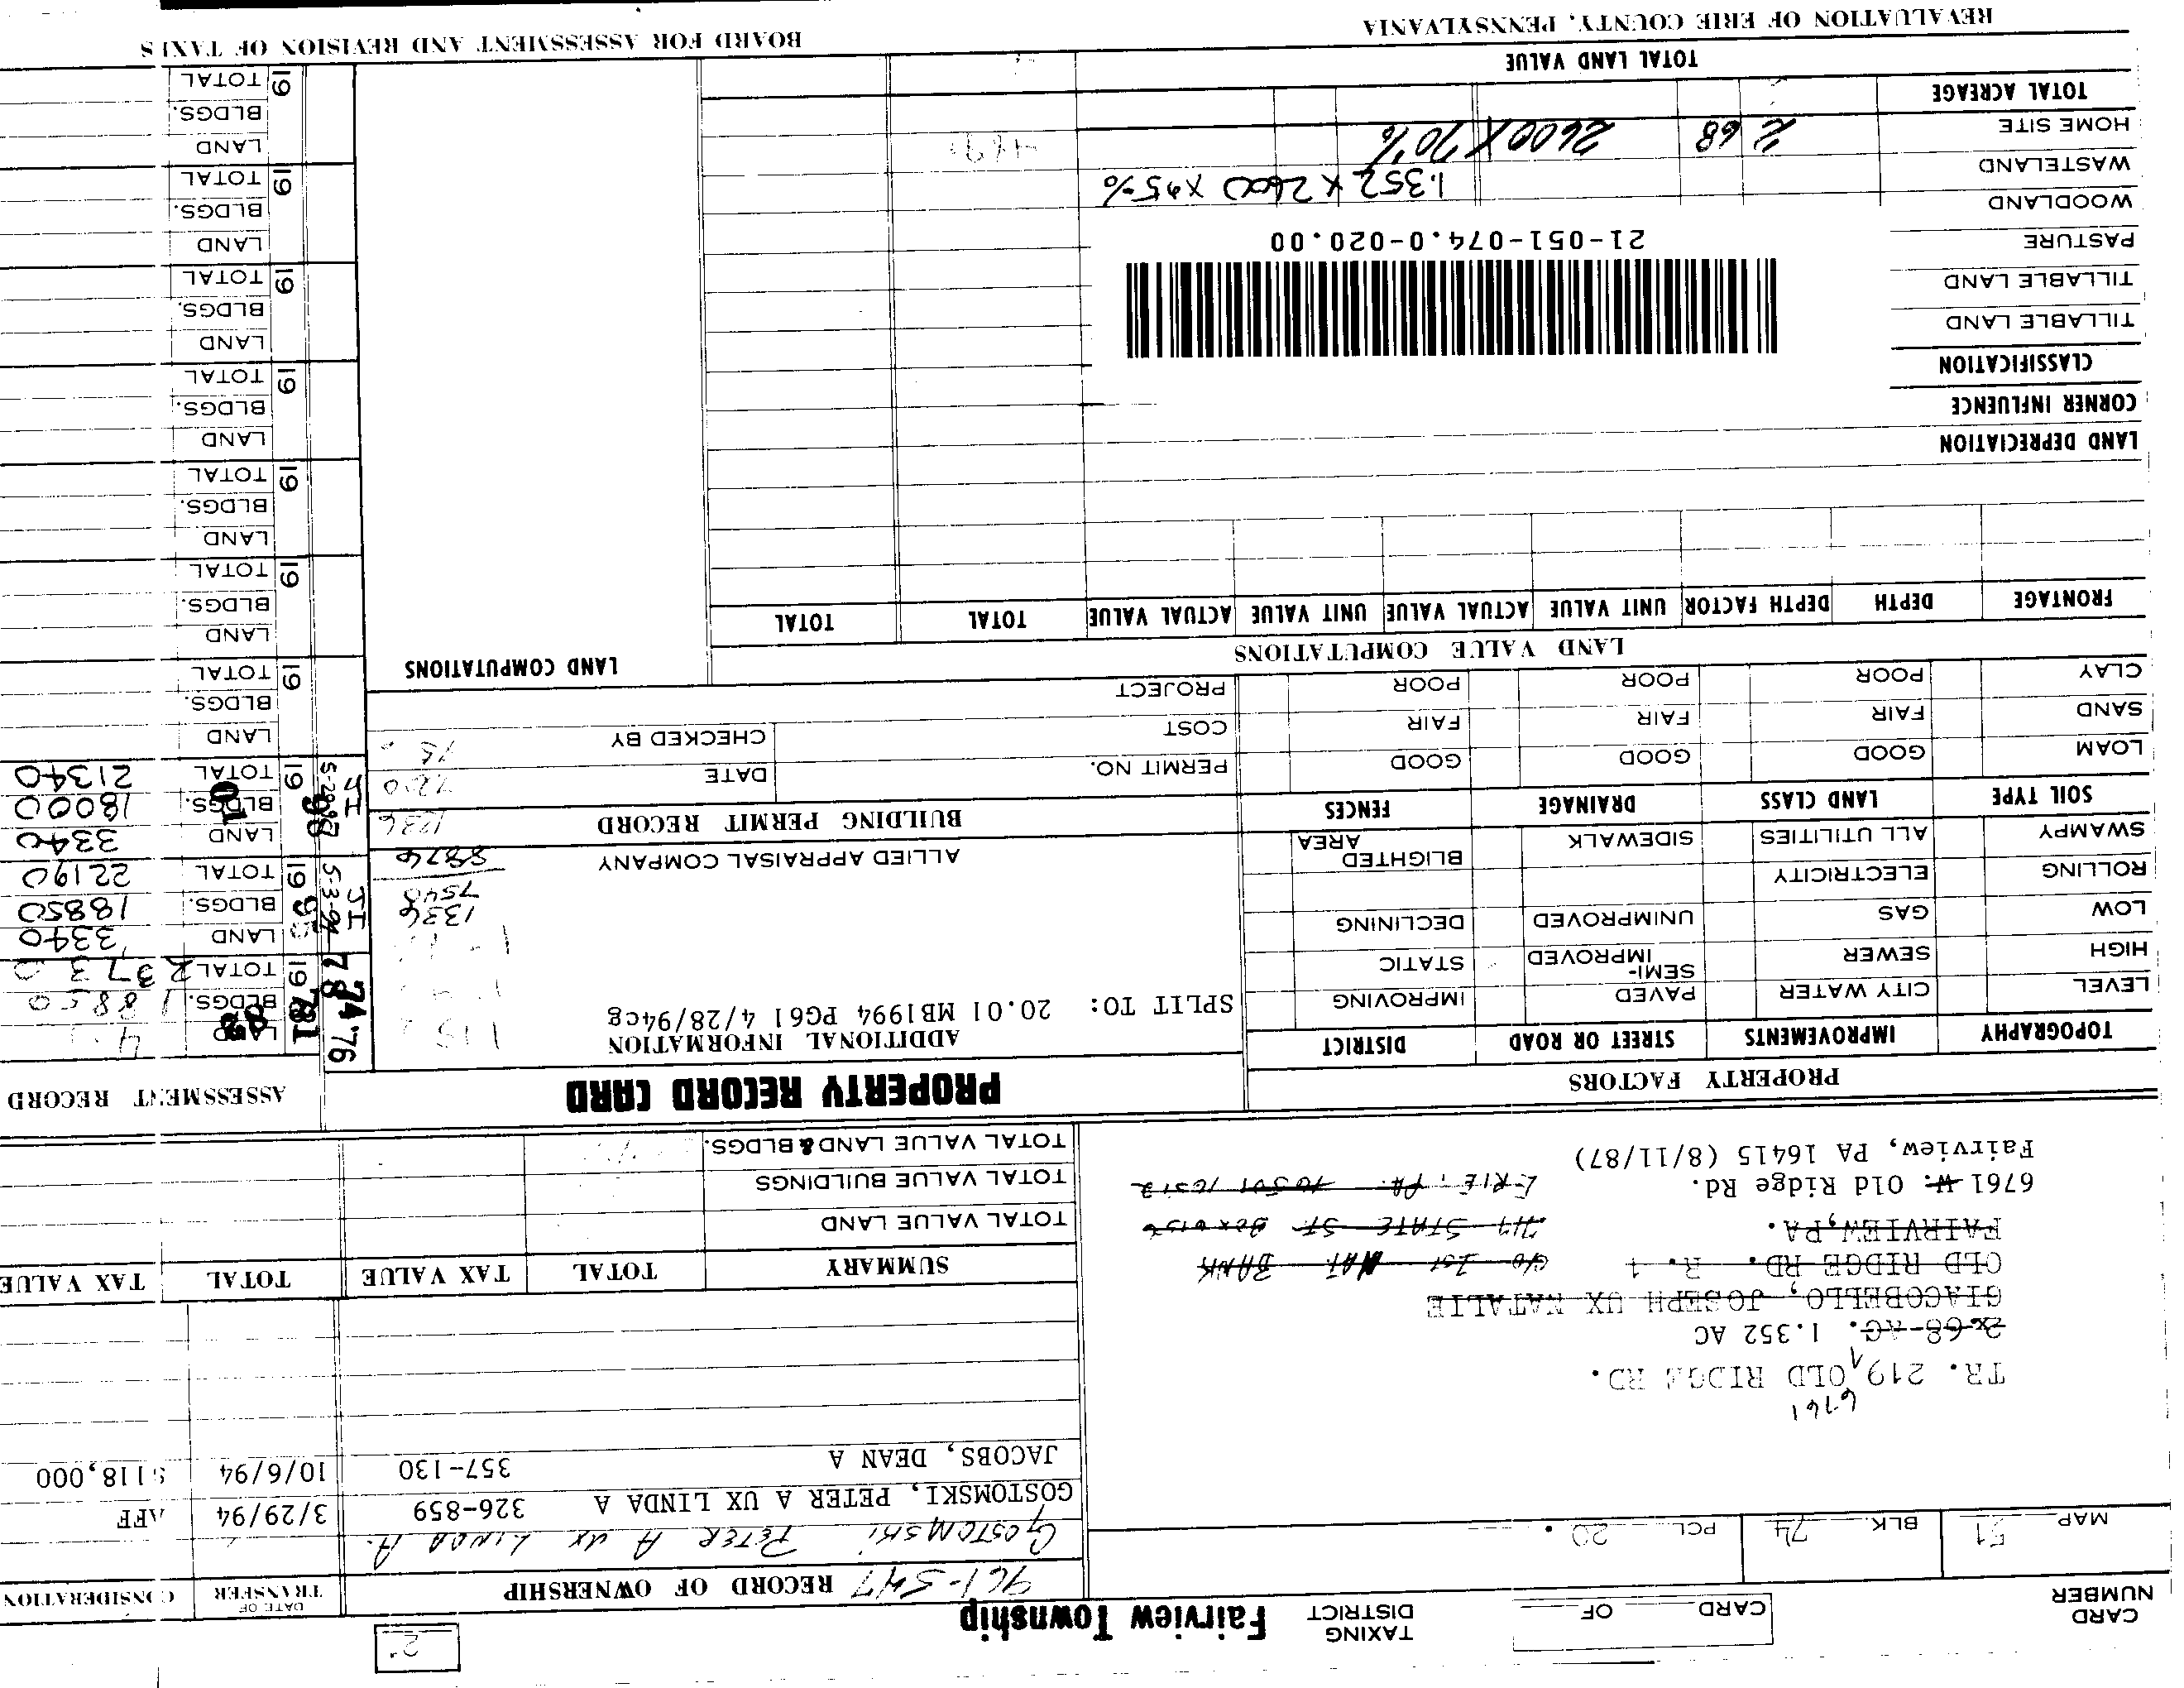 CARD NUMBER
CARD OF
TAXING DISTRICT Fairview Township
2
MAP 51 BLK. 74 PCL. 20.
961-547 RECORD OF OWNERSHIP
DATE OF TRANSFER
CONSIDERATION
GOSTOMSKI PETER A UX LINDA A.
GOSTOMSKI, PETER A UX LINDA A 326-859 3/29/94 AFF
JACOBS, DEAN A 357-130 10/6/94 $118,000
6761
TR. 219 OLD RIDGE RD.
2.68 AC. 1.352 AC
GIACOBELLO, JOSEPH UX NATALIE
OLD RIDGE RD. R. 1
FAIRVIEW, PA.
6761 W. Old Ridge Rd.
Fairview, PA 16415 (8/11/87)
C/O 1ST NAT. BANK
717 STATE ST. BOX 6156
ERIE, PA. 16512
SUMMARY TOTAL TAX VALUE TOTAL TAX VALUE
TOTAL VALUE LAND
TOTAL VALUE BUILDINGS
TOTAL VALUE LAND & BLDGS.
PROPERTY FACTORS
PROPERTY RECORD CARD
ASSESSMENT RECORD
TOPOGRAPHY IMPROVEMENTS STREET OR ROAD DISTRICT
LEVEL CITY WATER PAVED IMPROVING
HIGH SEWER SEMI-IMPROVED STATIC
LOW GAS UNIMPROVED DECLINING
ROLLING ELECTRICITY
SWAMPY ALL UTILITIES SIDEWALK BLIGHTED AREA
SOIL TYPE LAND CLASS DRAINAGE FENCES
LOAM GOOD GOOD GOOD
SAND FAIR FAIR FAIR
CLAY POOR POOR POOR
ADDITIONAL INFORMATION
SPLIT TO: 20.01 MB1994 PG61 4/28/94cg
1336
7540
8876
ALLIED APPRAISAL COMPANY
BUILDING PERMIT RECORD
1236
7200
PERMIT NO. DATE
COST CHECKED BY
PROJECT
74 '76
78
1981
LAND
BLDGS. 18850
TOTAL 23730
JI 5-3-94
1995
LAND 3340
BLDGS. 18850
TOTAL 22190
5-29-97
98
19 01
LAND 3340
BLDGS. 18000
TOTAL 21340
19 LAND
BLDGS.
TOTAL
19 LAND
BLDGS.
TOTAL
19 LAND
BLDGS.
TOTAL
19 LAND
BLDGS.
TOTAL
19 LAND
BLDGS.
TOTAL
19 LAND
BLDGS.
TOTAL
19 LAND
BLDGS.
TOTAL
LAND VALUE COMPUTATIONS
LAND COMPUTATIONS
FRONTAGE DEPTH DEPTH FACTOR UNIT VALUE ACTUAL VALUE UNIT VALUE ACTUAL VALUE TOTAL TOTAL
LAND DEPRECIATION
CORNER INFLUENCE
CLASSIFICATION
TILLABLE LAND
TILLABLE LAND
PASTURE
21-051-074.0-020.00
WOODLAND
1.352 X 2600 X 95%
WASTELAND
HOME SITE 2 68 2600 X 70%
TOTAL ACREAGE
TOTAL LAND VALUE
REVALUATION OF ERIE COUNTY, PENNSYLVANIA
BOARD FOR ASSESSMENT AND REVISION OF TAXES